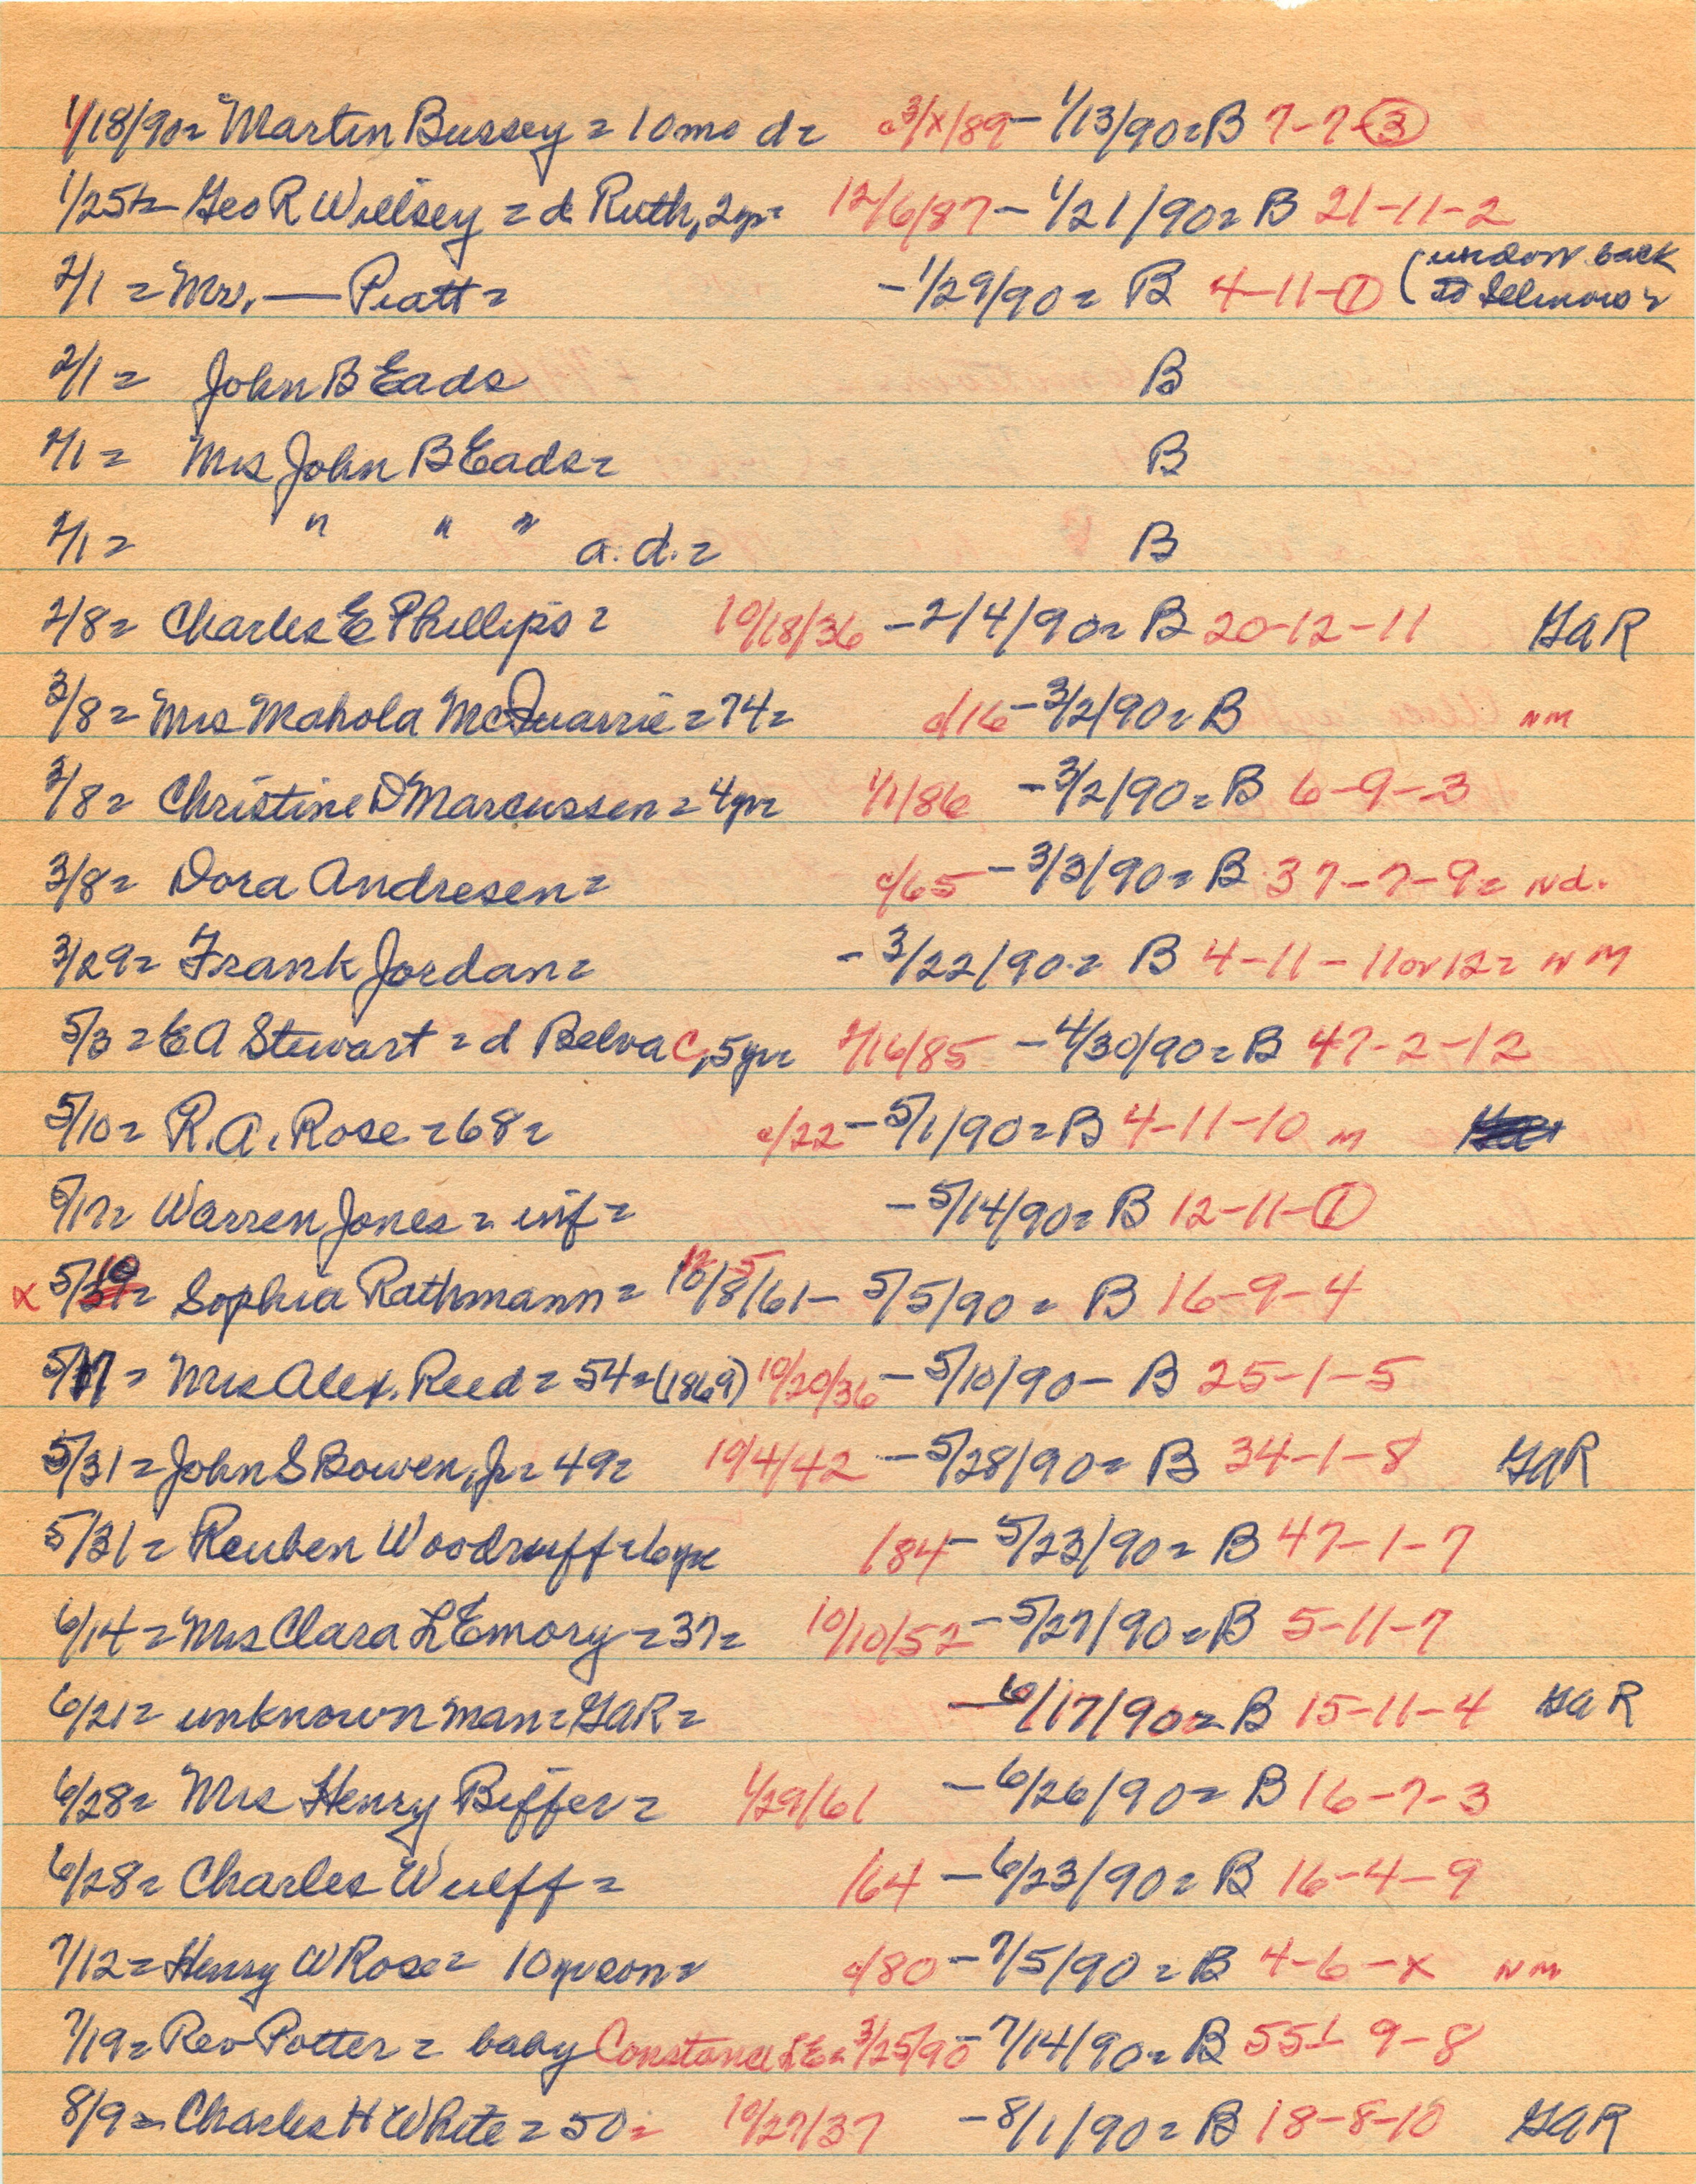 1/18/90= Martin Bussey = 10mo d= c3/x/89 - 1/13/90= B 7-7-3
1/25= Geo R Willsey = d Ruth, 2yr= 12/6/87 - 1/21/90= B 21-11-2
2/1 = Mr. — Piatt = - 1/29/90= B 4-11-1 (undorr back to
2/1 = John B Eads B
2/1 = Mrs John B Eads= B
2/1 = " " " a.d.= B
2/8= Charles E Phillips= 10/18/36 - 2/4/90= B 20-12-11 GAR
3/8= Mrs Mahola McQuarrie = 74= c/16 - 3/2/90= B NM
3/8= Christine D Marcussen = 4yr= 1/1/86 - 3/2/90= B 6-9-3
3/8= Dora Andresen= c/65 - 3/3/90= B 37-7-9= Nd.
3/29= Frank Jordan= - 3/22/90= B 4-11-11 or 12= NM
5/3 = E A Stewart = d Belva C, 5yr= 2/16/85 - 4/30/90= B 47-2-12
5/10= R.A. Rose = 68= c/22 - 5/1/90= B 4-11-10 M
5/17= Warren Jones = inf= - 5/14/90= B 12-11-1
x 5/10= Sophia Rathmann = 12/5/61 - 5/5/90 = B 16-9-4
5/17 = Mrs Alex. Reed = 54=(1869) 10/20/36 - 5/10/90- B 25-1-5
5/31 = John S Bowen, Jr= 49= 10/4/42 - 5/28/90= B 34-1-8 GAR
5/31 = Reuben Woodruff = 6yr /84 - 5/23/90= B 47-1-7
6/14 = Mrs Clara L Emory = 37= 10/10/52 - 5/27/90= B 5-11-7
6/21= unknown man= GAR= - 6/17/90= B 15-11-4 GAR
6/28= Mrs Henry Biffer= 1/29/61 - 6/26/90= B 16-7-3
6/28= Charles Wulff= /64 - 6/23/90= B 16-4-9
7/12= Henry W Rose= 10yr son= c/80 - 7/5/90= B 4-6-x NM
7/19= Rev Potter = baby Constance 3/25/90 - 7/14/90= B 55- 9-8
8/9= Charles H White = 50= 10/27/37 - 8/1/90= B 18-8-10 GAR